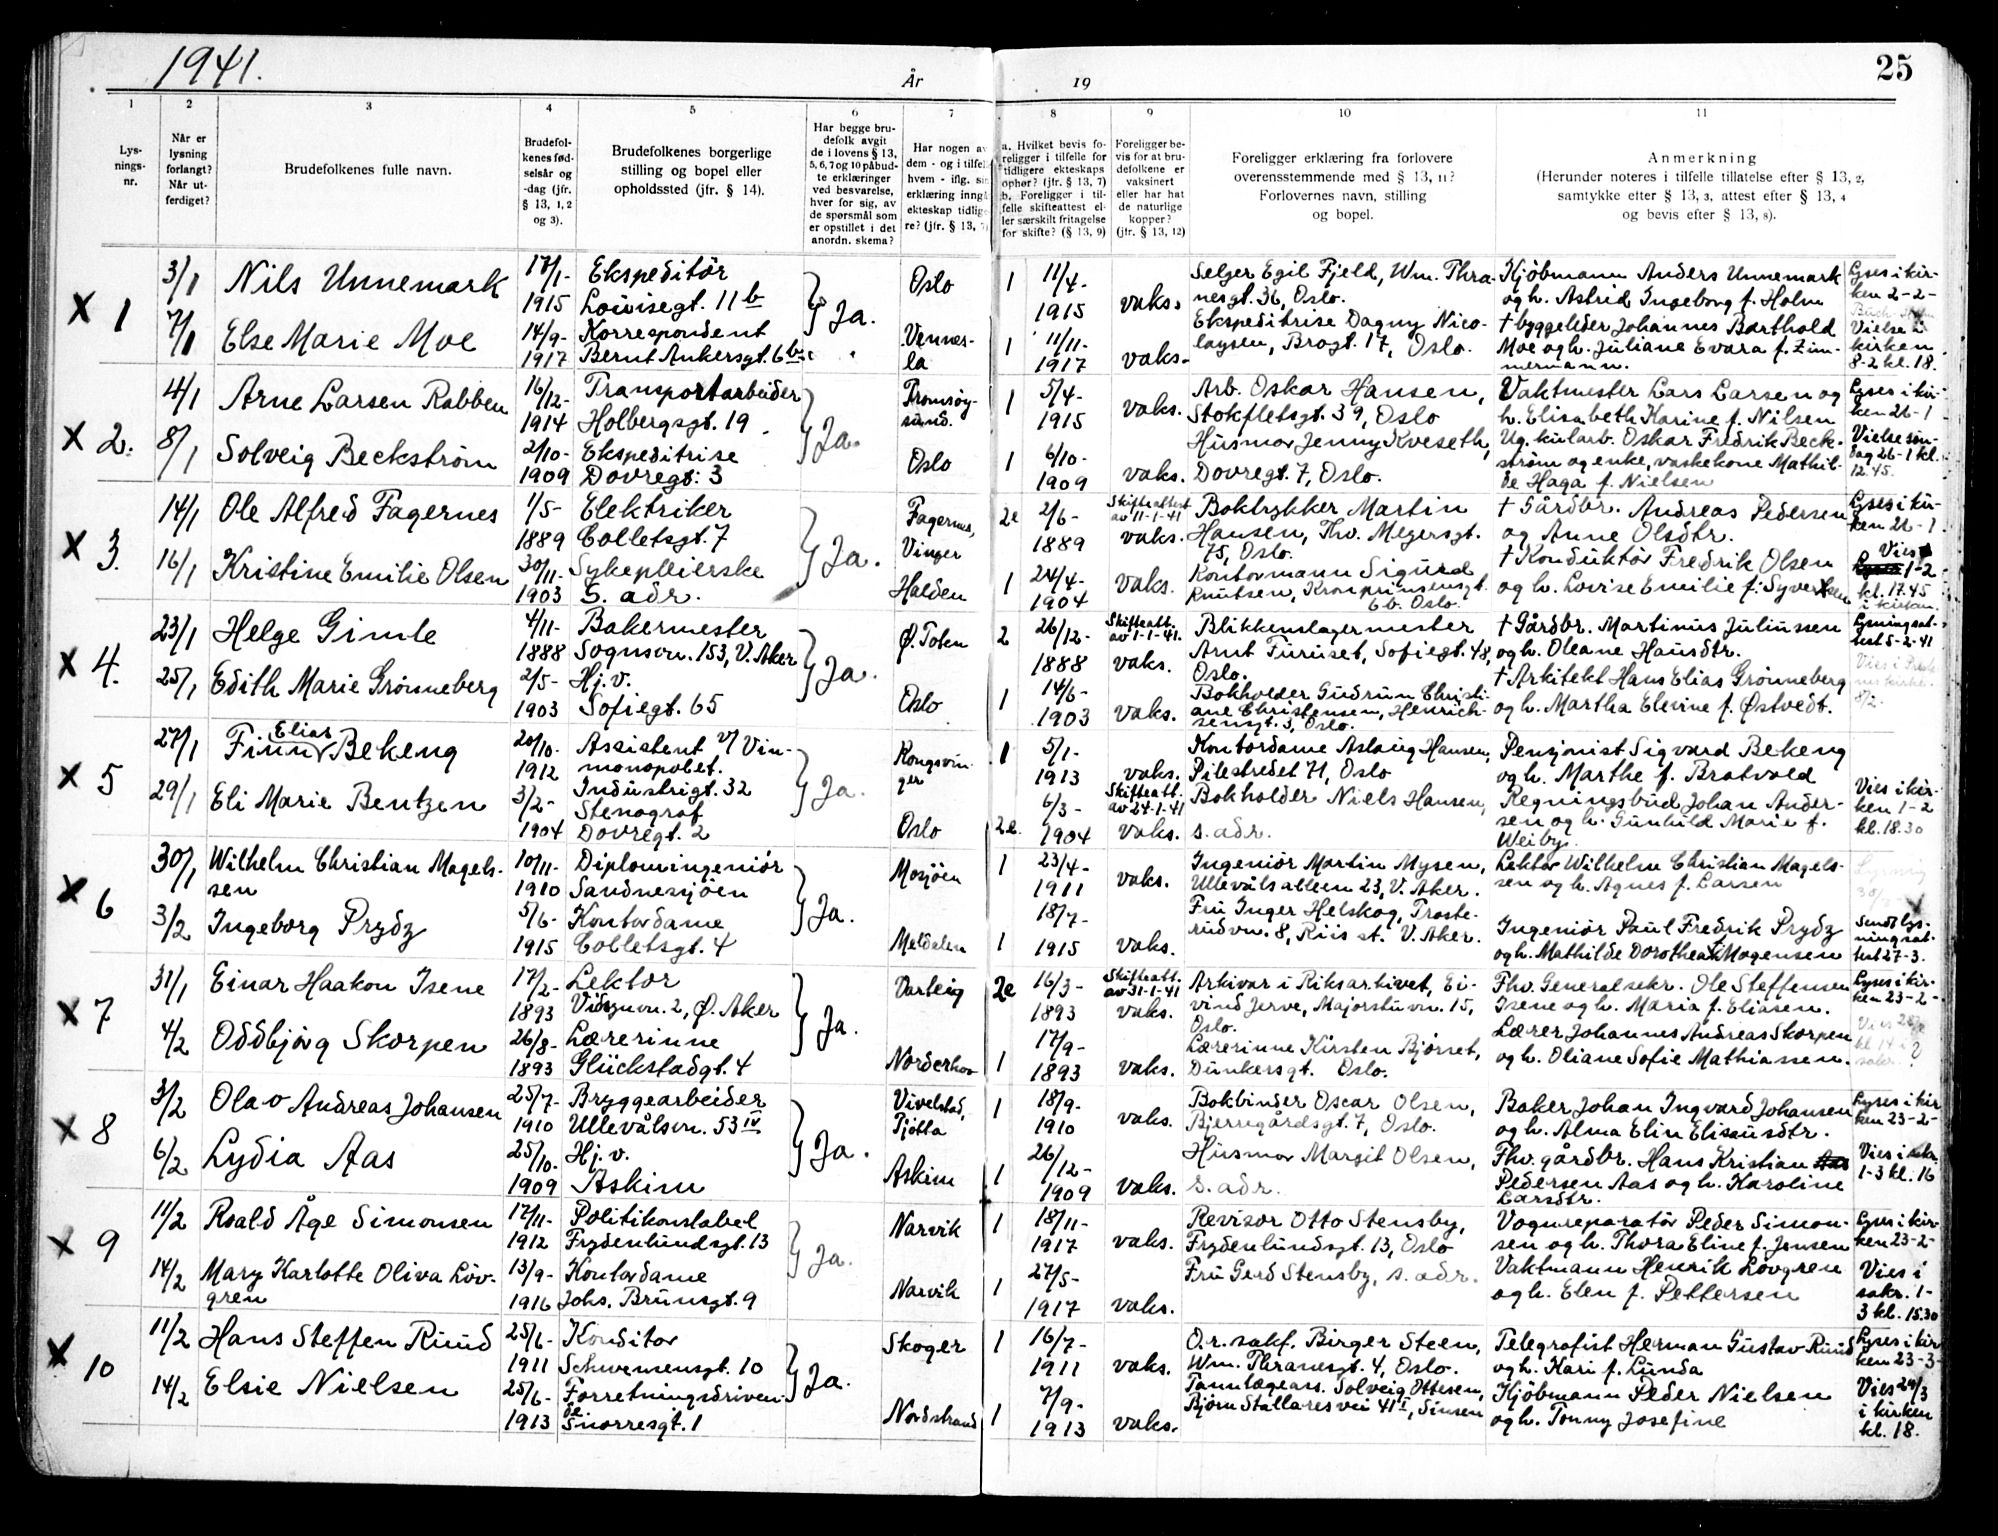 1941.
År
19
25
1
2
3
4
5
6
7
8
9
10
11
Lys-
nings-
nr.
Når er
lysning
forlangt?
Når ut-
ferdiget?
Brudefolkenes fulle navn.
Brudefol-
kenes fød-
selsår og
-dag (jfr.
§ 13, 1, 2
og 3).
Brudefolkenes borgerlige
stilling og bopel eller
opholdssted (jfr. § 14).
Har begge bru-
defolk avgit
de i lovens § 13,
5, 6, 7 og 10 påbud-
te erklæringer
ved besvarelse,
hver for sig, av
de spørsmål som
er opstillet i det
anordn. skema?
Har nogen av
dem - og i tilfel
hvem - iflg. sin
erklæring inngå
ekteskap tidlig
re? (jfr. § 13,
a. Hvilket bevis fo-
religger i tilfelle for
tidligere ekteskaps
ophør? (jfr. § 13, 7)
b. Foreligger i til-
felle skifteattest el-
ler særskilt fritagelse
for skifte? (§ 13, 9)
Foreligger be-
vis for at bru-
defolkene er
vaksinert
eller har hat
de naturlige
kopper?
(jfr. § 13, 12)
Foreligger erklæring fra forlovere
overensstemmende med § 13, 11?
Forlovernes navn, stilling
og bopel.
Anmerkning
(Herunder noteres i tilfelle tillatelse efter § 13, 2,
samtykke efter § 13, 3, attest efter § 13, 4
og bevis efter § 13, 8).
X 1
3/1
7/1
Nils Unnemark
Else Marie Moe
17/1-
1915
14/9-
1917
Ekspeditör
Lovisegt. 11b
Korrespondent
Bernt Ankersgt. 6b
Ja.
Oslo
Venner-
la
1
1
11/4-
1915
11/11-
1917
vaks.
vaks.
Selger Egil Fjeld, Wm. Thra-
nesgt. 36, Oslo.
Ekspeditrise Dagny Nico-
laysen, Brogt. 17, Oslo.
Kjöbmann Anders Unnemark
og h. Astrid Ingeborg f. Holm
+ byggeleder Johannes Barthold
Moe og h. Juliane Evara f. Zim-
mermann.
Lyses i kir-
ken 2-2-
Vielse i
kirken
8-2 kl. 18.
X 2.
4/1
8/1
Arne Larsen Rabben
Solveig Beckström
16/12-
1914
2/10-
1909
Transportarbeider
Holbergsgt. 19
Ekspeditrise
Dovregt. 3
Ja.
Tromsöy-
sund.
Oslo
1
1
5/4-
1915
6/10-
1909
vaks.
vaks.
Arb. Oskar Hansen,
Stokfletsgt. 39, Oslo
Husmor Jenny Kveseth,
Dovregt. 7, Oslo.
Vaktmester Lars Larsen og
h. Elisabeth Karine f. Nilsen
Ug. kularb. Oskar Fredrik Beck-
ström og enke, vaskekone Mathil-
de Haga f. Nielsen
Lyses i kir-
ken 26-1
Vielse søn-
dag 26-1 kl.
12.45.
X 3.
14/1
16/1
Ole Alfred Fagernes
Kristine Emilie Olsen
1/5-
1889
30/11-
1903
Elektriker
Colletsgt. 7
Sykepleierske
S. adr.
Ja.
Fagernes,
Vinger
Halden
2e
1
2/6-
1889
24/4-
1904
Skifteattest
av 11-1-41
vaks.
vaks.
Boktrykker Martin
Hansen, Thv. Meyersgt.
75, Oslo.
Kontormann Sigurd
Knutsen, Kronprinsensgt.
Eb. Oslo.
+ Gårdbr. Andreas Pedersen
og Anne Olsdtr.
+ Konduktör Fredrik Olsen
og h. Lovise Emilie f. Syvertsen
Lyses i kir-
ken 26-1
Vies
1-2
kl. 17.45
i kirken.
X 4.
23/1
25/1
Helge Gimle
Edith Marie Grønneberg
4/11-
1888
2/5-
1903
Bakermester
Sognsvn. 153, V. Aker
Hj. v.
Sofiegt. 65
Ja.
Ø. Toten
Oslo
2
1
26/12-
1888
14/6-
1903
Skifteatt.
av 1-1-41.
vaks.
vaks.
Blikkenslagermester
Arnt Furuset, Sofiegt. 48,
Oslo.
Bokholder Gudrun Christi-
ane Christensen, Henrich-
sensgt. 3, Oslo
+ Gårdbr. Martinus Juliussen
og h. Oleane Hansdtr.
+ Arkitekt Hans Elias Grønneberg
og h. Martha Elevine f. Østvedt.
Lysningsat-
test 5-2-41
8/2.
X 5
27/1
29/1
Elias
Finn Bekeng
Eli Marie Bentzen
20/10-
1912
3/2-
1904
Assistent v/ Vin-
monopolet.
Industrigt. 32
Stenograf
Dovregt. 2
Ja.
Kongsvin-
ger
Oslo
1
2e
5/1-
1913
6/3-
1904
vaks.
Skifteatt.
av 24-1-41
vaks.
Kontordame Aslaug Hansen,
Pilestredet 71, Oslo
Bokholder Niels Hansen,
s. adr.
Pensjonist Sigvard Bekeng
og h. Marthe f. Bratvold
Regningsbud Johan Ander-
sen og h. Gunhild Marie f.
Weiby.
Vies i kir-
ken 1-2
kl. 18.30
X 6
30/1
3/2
Wilhelm Christian Magels-
sen
Ingeborg Prydz
10/11-
1910
5/6-
1915
Diplomingeniör
Sandnessjöen
Kontordame
Colletsgt. 4
Ja.
Mosjöen
Meldalen
1
1
23/4-
1911
18/7-
1915
vaks.
vaks.
Ingeniör Martin Mysen,
Ullevålsalleen 23, V. Aker.
Fru Inger Helskog, Troste-
rudvn. 8, Riis st. V. Aker.
Lektor Wilhelm Christian Magels-
sen og h. Agnes f. Larsen
Ingeniør Paul Fredrik Prydz
og h. Mathilde Dorothea f. Mogensen
Sendt lys-
ningsat-
test 27-3.
X 7
31/1
4/2
Einar Haakon Isene
Oddbjörg Skorpen
17/2-
1893
26/8-
1893
Lektor
Vidsynvn. 2, Ø. Aker
Lærerinne
Glückstadgt. 4
Ja.
Varteig
Norderhov
2e
1
16/3-
1893
17/9-
1893
Skifteatt.
av 31-1-41
vaks.
vaks.
Arkivar i Riksarkivet, Ei-
vind Jerve, Majorstuvn. 15,
Oslo.
Lærerinne Kirsten Bjørset,
Dunkersgt. Oslo.
Fhv. Generalsekr. Ole Steffensen
Isene og h. Maria f. Eliasen.
Lærer Johannes Andreas Skorpen
og h. Oliane Sofie Mathiassen.
Lyses i kir-
ken 23-2-
X 8
3/2
6/2
Olav Andreas Johansen
Lydia Aas
25/7-
1910
25/10.
1909
Bryggearbeider
Ullevålsvn. 53 IV
Hj. v.
Askim
Ja.
Vivelstad,
Tjötta
Askim
1
1
18/9-
1910
26/12-
1909
vaks.
vaks.
Bokbinder Oscar Olsen,
Bjerregårdsgt. 7, Oslo.
Husmor Margit Olsen,
s. adr.
Baker Johan Ingvard Johansen
og h. Alma Elin Eliseusdtr.
Fhv. gårdbr. Hans Kristian
Pedersen Aas og h. Karoline
Larsdtr.
Lyses i kir
ken 23-2-
Vies i sakr.
1-3 kl. 16
X 9
11/2
14/2
Roald Åge Simonsen
Mary Karlotte Oliva Löv-
gren
17/11-
1912
13/9-
1916
Politikonstabel
Frydenlundsgt. 13
Kontordame
Johs. Brunsgt. 9
Ja.
Narvik
Narvik
1
1
18/11-
1917
27/5-
1917
vaks.
vaks.
Revisor Otto Stensby,
Frydenlundsgt. 13, Oslo
Fru Gerd Stensby, s. adr.
Vognreparatör Peder Simon-
sen og h. Thora Eline f. Jensen
Vaktmann Henrik Lövgren
og h. Elen f. Pettersen
Lyses i kir-
ken 23-2-
Vies i
sakr. 1-
3 kl. 15.30
X 10
11/2
14/2
Hans Steffen Ruud
Elsie Nielsen
25/6-
1911
25/6-
1913
Konditor
Schwensensgt. 10
Forretningsdriven-
de
Snorresgt. 1
Ja.
Skoger
Nordstrand
1
1
16/7-
1911
7/9-
1913
vaks.
vaks.
O.r. sakf. Birger Steen,
Wm. Thranesgt. 4, Oslo.
Tannlægeass. Solveig Ottesen,
Bjørn Stallares vei 41 I, Sinsen
Telegrafist Herman Gustav Ruud
og h. Kari f. Lunda
Kjöbmann Peder Nielsen
og h. Tonny Josefine
Lyses i kir
ken 23-3-
Vies 24/3
i kirken
kl. 18.